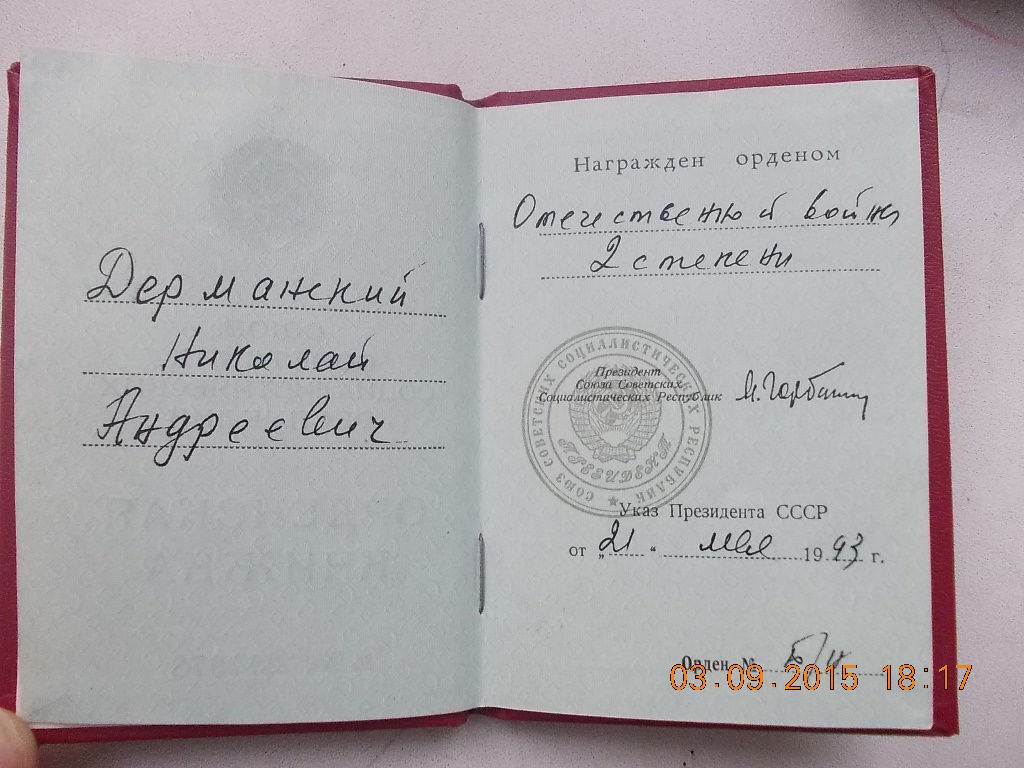 Дерманский
Николай
Андреевич
Награжден орденом
Отечественной войны
2 степени
СОЮЗ СОВЕТСКИХ СОЦИАЛИСТИЧЕСКИХ РЕСПУБЛИК
ПРЕЗИДЕНТ
Президент
Союза Советских
Социалистических Республик М. Горбачев
Указ Президента СССР
от „21“ мая 1993 г.
Орден № Б/н
03.09.2015 18:17